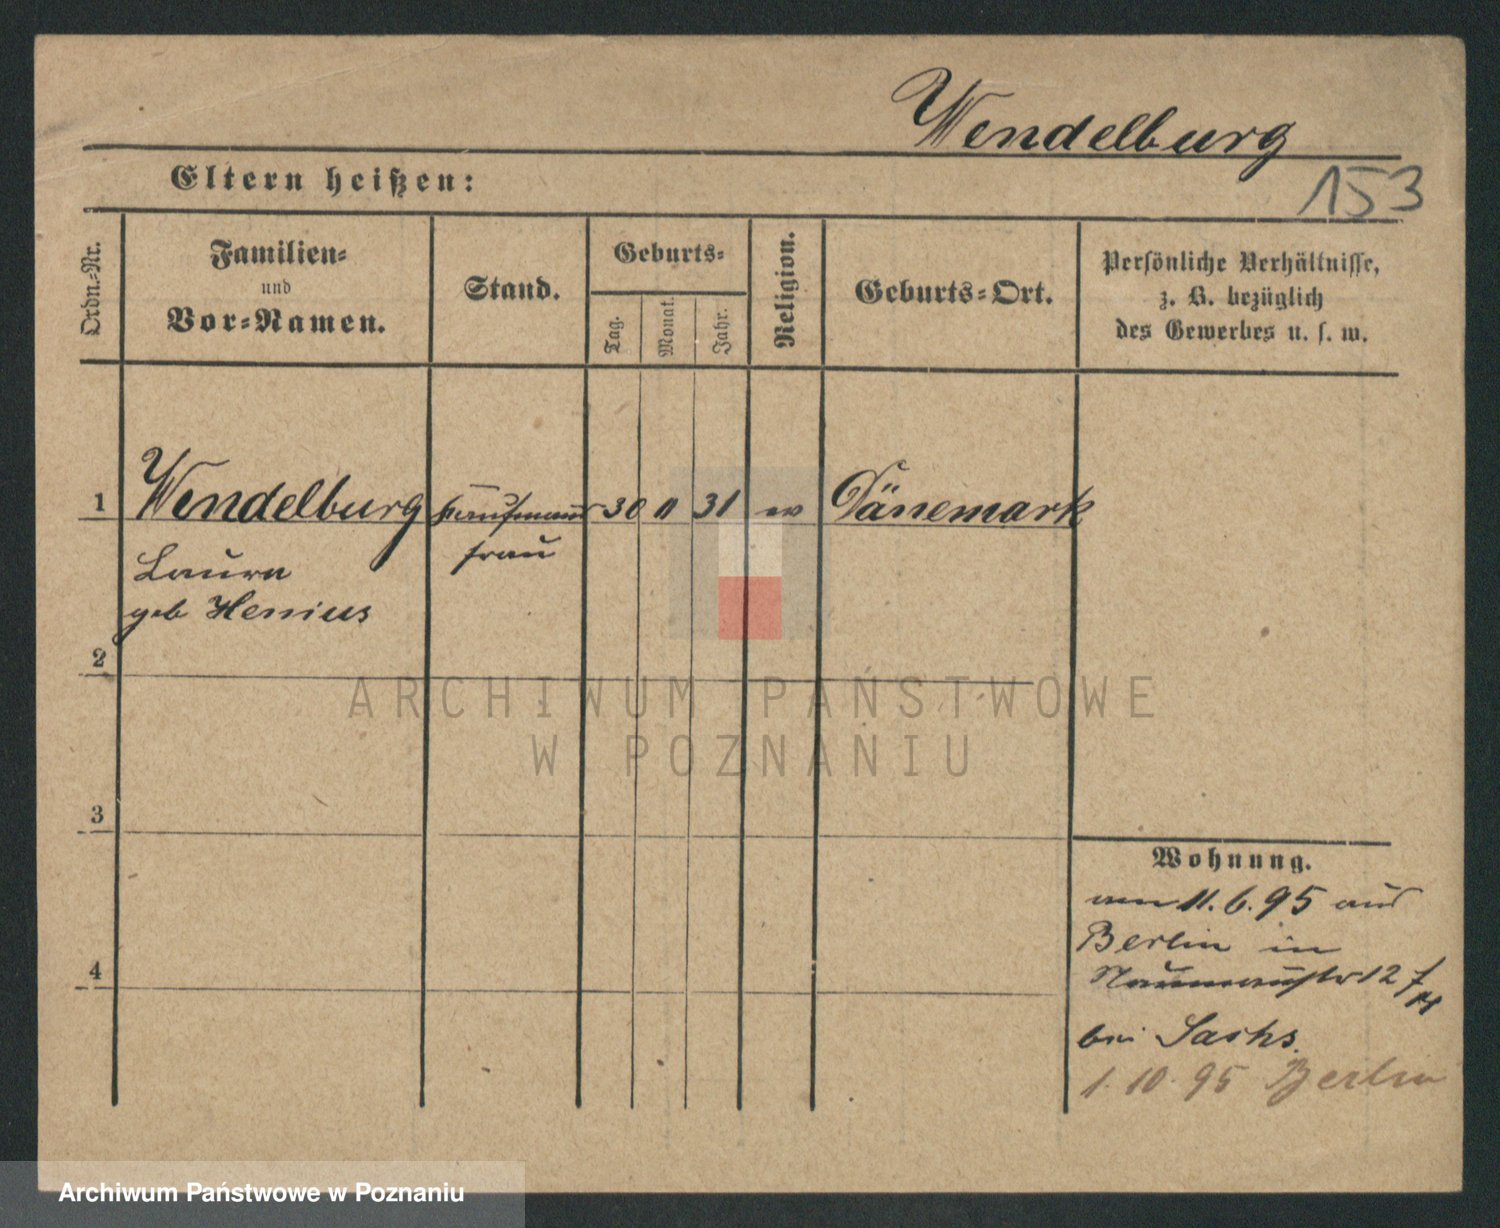 Wendelburg
153
Eltern heißen:
Ordn.-Nr.
Familien-
und
Vor-Namen.
Stand.
Geburts-
Tag.
Monat.
Jahr.
Religion.
Geburts-Ort.
Persönliche Verhältnisse,
z. B. bezüglich
des Gewerbes u. s. w.
1 Wendelburg Kaufmann 30 11 31 ev Dänemark
frau
Laura
geb Henius
2
ARCHIWUM PAŃSTWOWE
W POZNANIU
3
4
Wohnung.
am 11.6.95 aus
Berlin in
Naumannstr 12
bei Sachs.
1.10.95 Berlin
Archiwum Państwowe w Poznaniu